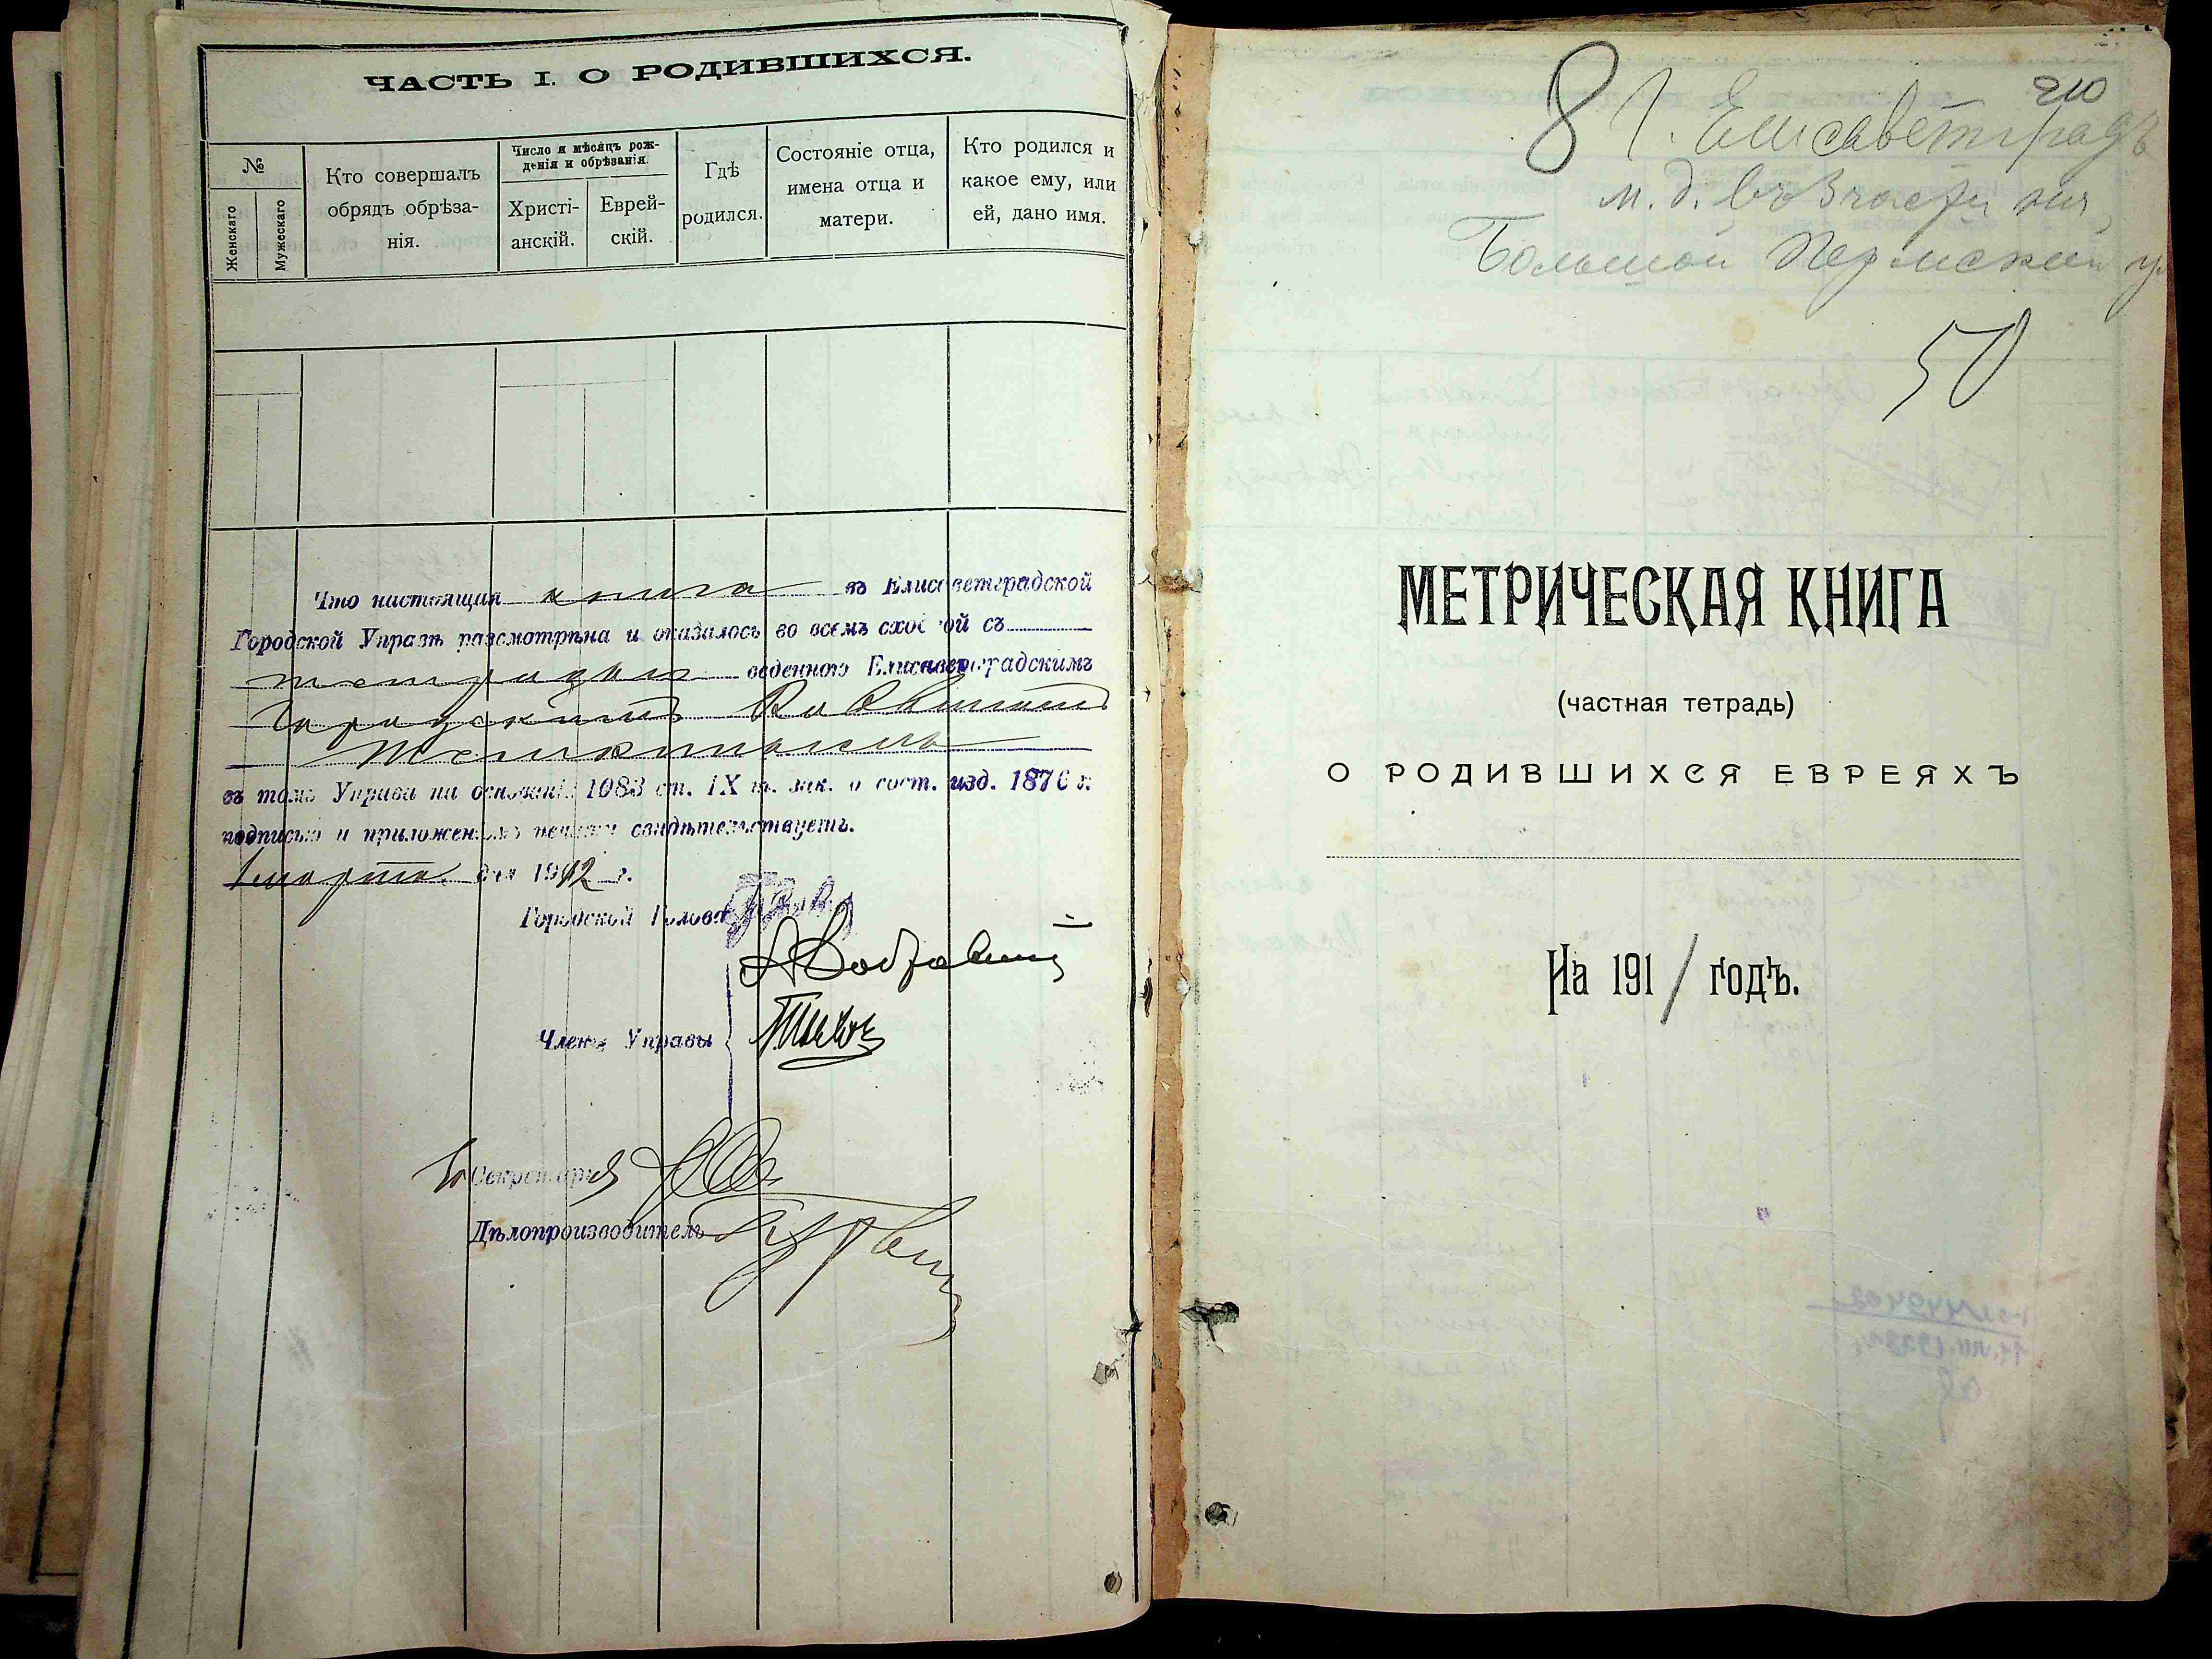 ЧАСТЬ I. О РОДИВШИХСЯ.
№
Женскаго
Мужескаго
Кто совершалъ
обрядъ обрѣза-
нія.
Число и мѣсяцъ рож-
денія и обрѣзанія.
Христі-
анскій.
Еврей-
скій.
Гдѣ
родился.
Состояніе отца,
имена отца и
матери.
Кто родился и
какое ему, или
ей, дано имя.
Что настоящая книга въ Елисаветградской
Городской Управѣ разсмотрѣна и оказалось во всемъ сходной съ
тетрадью веденною Елисаветградскимъ
Городскимъ Раввиномъ
въ томъ Управа на основаніи 1083 ст. IX т. зак. о сост. изд. 1876 г.
подписью и приложеніемъ печати свидѣтельствуетъ.
1 марта дня 1912 г.
Городской Голова
Члены Управы
Секретаря
Дѣлопроизводитель
210
8 Г. Елисаветградъ
м. д. въ 3 части на
Большой Пермской у
50
МЕТРИЧЕСКАЯ КНИГА
(частная тетрадь)
О РОДИВШИХСЯ ЕВРЕЯХЪ
На 1911 годъ.